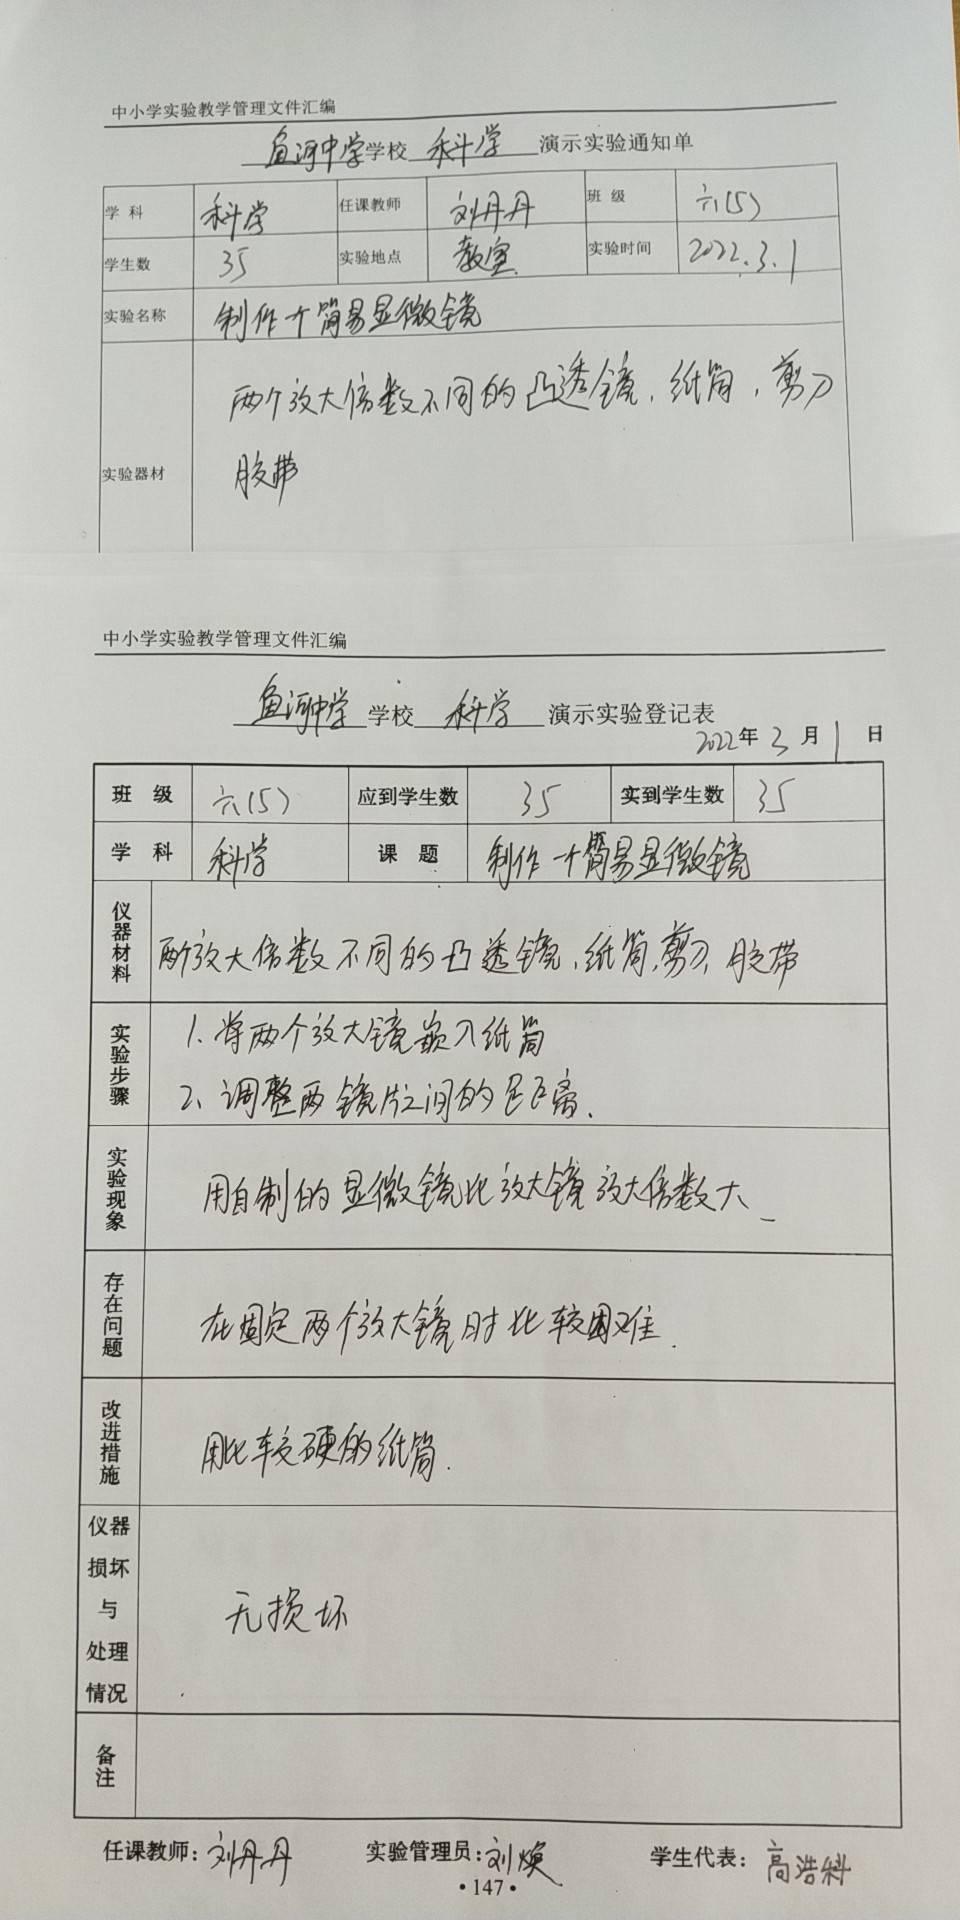 中小学实验教学管理文件汇编
鱼河中学学校 科学 演示实验通知单
学科 科学 任课教师 刘丹丹 班级 六(5)
学生数 35 实验地点 教室 实验时间 2022.3.1
实验名称 制作个简易显微镜
实验器材 两个放大倍数不同的凸透镜、纸筒，剪刀
胶带
中小学实验教学管理文件汇编
鱼河中学学校 科学 演示实验登记表
2022年3月1日
班级 六(5) 应到学生数 35 实到学生数 35
学科 科学 课题 制作个简易显微镜
仪器材料 两个放大倍数不同的凸透镜、纸筒、剪刀、胶带
实验步骤 1、将两个放大镜嵌入纸筒
2、调整两镜片之间的距离.
实验现象 用自制的显微镜比放大镜放大倍数大
存在问题 在固定两个放大镜时比较困难.
改进措施 用比较硬的纸筒.
仪器
损坏
与
处理
情况
无损坏
备注
任课教师：刘丹丹 实验管理员：刘焕 学生代表：高浩科
·147·